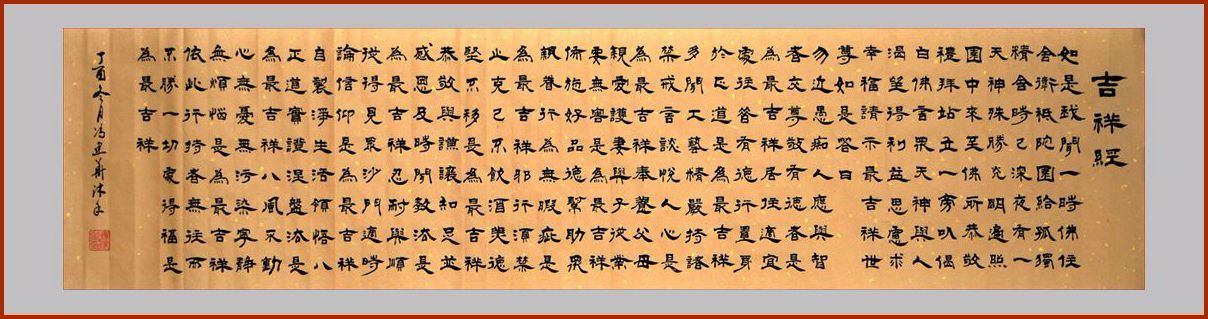 吉祥經
如是我聞一時佛住
舍衛祇陀園給孤獨
精舍時已深夜有一
天神殊勝光明遍照
園中來至佛所恭敬
禮拜站立一旁以偈
白佛言眾天神與人
渴望得利益思慮求
幸福請示最吉祥世
尊如是答曰
勿近愚痴人應與智
者交尊敬有德者是
為最吉祥居住適宜
處往昔有德行置身
於正道是為最吉祥
多聞工藝精嚴持諸
禁戒言談悅人心是
為最吉祥奉養父母
親愛護妻與子從業
要無害是為最吉祥
佈施好品德幫助眾
親眷行為無瑕疵是
為最吉祥邪行須禁
止克己不飲酒美德
堅不移是為最吉祥
恭敬與謙讓知足並
感恩及時聞教法是
為最吉祥忍耐與順
從得見眾沙門適時
論信仰是為最吉祥
自製淨生活領悟八
正道實證涅盤法是
為最吉祥八風不動
心無憂無污染寧靜
無煩惱是為最吉祥
依此行持者無往而
不勝一切處得福是
為最吉祥
丁酉冬月冯建沐手